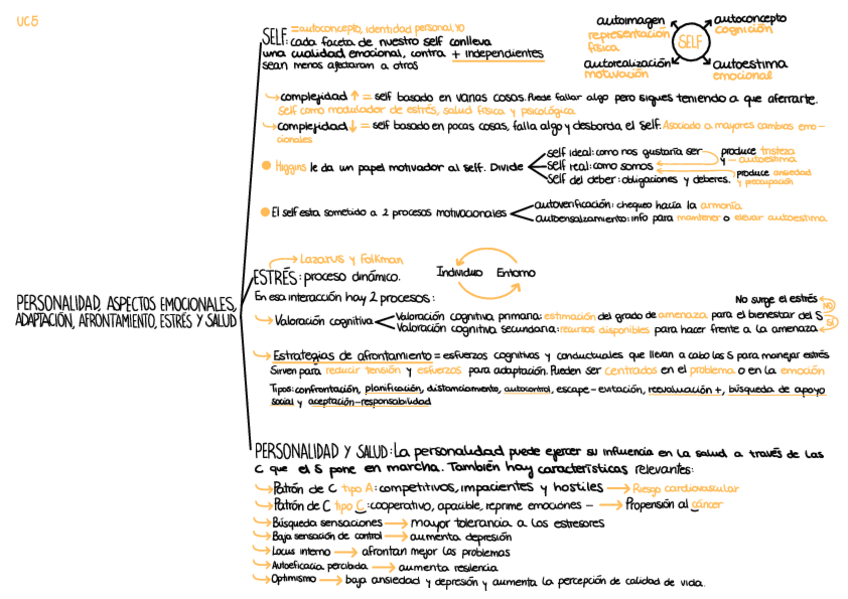 UC5
=autoconcepto, identidad personal, yo
SELF: cada faceta de nuestro self conlleva
una cualidad emocional, contra + independientes
sean menos afectaran a otros
autoimagen
representación
física
autoconcepto
cognición
SELF
autorealización
motivación
autoestima
emocional
complejidad ↑ = self basado en varias cosas. Puede fallar algo pero sigues teniendo a que aferrarte.
Self como modulador de estrés, salud física y psicológica
complejidad ↓ = self basado en pocas cosas, falla algo y desborda el self. Asociado a mayores cambios emo-
cionales
Higgins le da un papel motivador al self. Divide
self ideal: como nos gustaría ser
self real: como somos
self del deber: obligaciones y deberes.
produce tristeza
y - autoestima
produce ansiedad
y preocupación
El self esta sometido a 2 procesos motivacionales
autoverificación: chequeo hacia la armonía
autoensalzamiento: info para mantener o elevar autoestima
PERSONALIDAD, ASPECTOS EMOCIONALES,
ADAPTACIÓN, AFRONTAMIENTO, ESTRÉS Y SALUD
Lazarus y Folkman
ESTRÉS: proceso dinámico.
Individuo Entorno
En esa interacción hay 2 procesos:
No surge el estrés
NO
SÍ
Valoración cognitiva
Valoración cognitiva primaria: estimación del grado de amenaza para el bienestar del S
Valoración cognitiva secundaria: recursos disponibles para hacer frente a la amenaza
Estrategias de afrontamiento = esfuerzos cognitivos y conductuales que llevan a cabo los S para manejar estrés
Sirven para reducir tensión y esfuerzos para adaptación. Pueden ser centrados en el problema o en la emoción
Tipos: confrontación, planificación, distanciamiento, autocontrol, escape-evitación, reevaluación +, búsqueda de apoyo
social y aceptación-responsabilidad
PERSONALIDAD Y SALUD: La personalidad puede ejercer su influencia en la salud a través de las
C que el S pone en marcha. También hay características relevantes:
Patrón de C tipo A: competitivos, impacientes y hostiles → Riesgo cardiovascular
Patrón de C tipo C: cooperativo, apacible, reprime emociones - → Propensión al cáncer
Búsqueda sensaciones → mayor tolerancia a los estresores
Baja sensación de control → aumenta depresión
Locus interno → afrontan mejor los problemas
Autoeficacia percibida → aumenta resilencia
Optimismo → baja ansiedad y depresión y aumenta la percepción de calidad de vida.